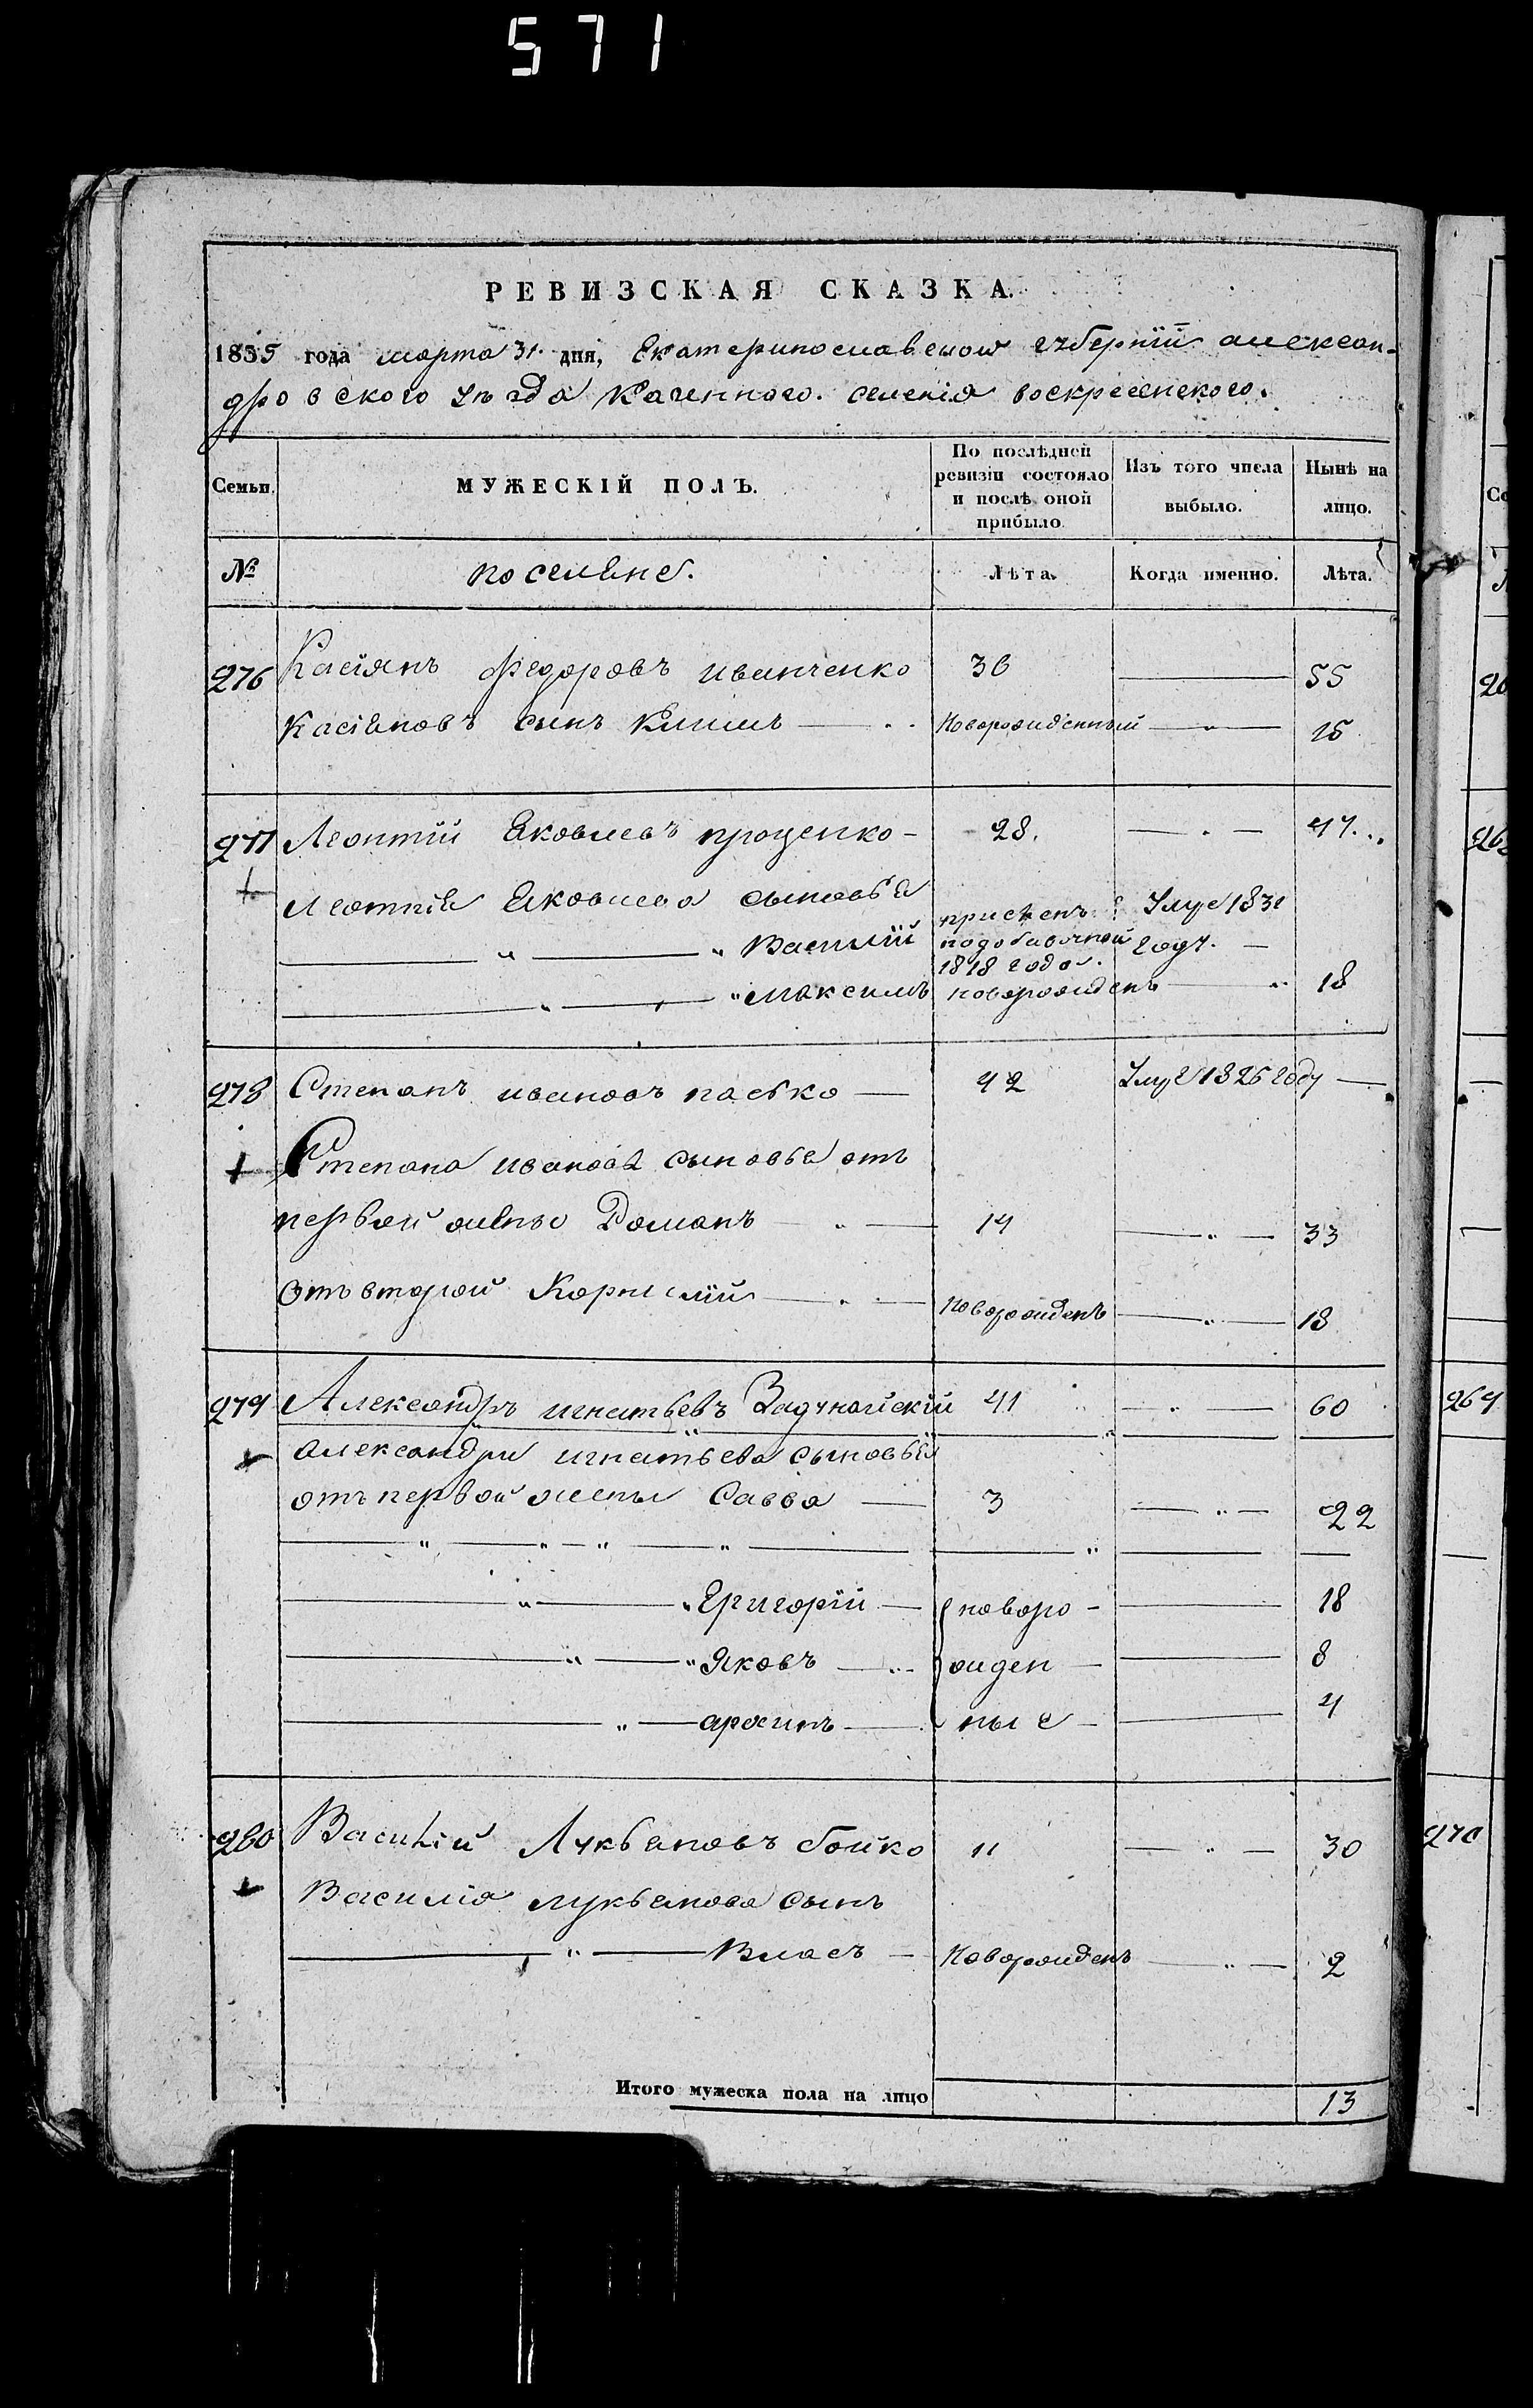 571
РЕВИЗСКАЯ СКАЗКА.
1835 года марта 31. дня, Екатеринославской губерніи алексан-
дровского уѣзда Казенного. селенія воскресенского.
Семьи. МУЖЕСКІЙ ПОЛЪ. По послѣдней ревизіи состояло и послѣ оной прибыло. Изъ того числа выбыло. Нынѣ на лицо.
№ поселяне. Лѣта. Когда именно. Лѣта.
276 Касіянъ Федоровъ иванченко 36 — 55
Касіяновъ сынъ Климъ — Новорожденный — " — 15
277 Леонтій Яковлевъ проценко - 28. — 47..
Леонтія Яковлева сыновья
— " — " Василій присженъ подобавочной 1818 года. Умре 1831 году. —
— " — " максимъ новорожденъ — 18
278 Степанъ ивановъ пасько — 42 Умре 1826 году —
+ Степана иванова сыновья отъ
первой жены Романъ — " — 14 — " — 33
Отъ второй Корнилій — " — новорожденъ — " — 18
279 Александръ игнатьевъ Задунайскій 41 — " — 60
+ александра игнатьева сыновья
отъ первой жены Савва — 3 — " — 22
— " — " — " — " — " —
— " — " Григорій — новоро - — 18
— " — " Яковъ — " жден — — 8
— " — архипъ — ные — — 4
280 Василій Лукьяновъ бойко 11 — " — 30
+ Василія лукьянова сынъ
— " — Власъ — Новорожденъ — " — 2
Итого мужеска пола на лицо 13
269
270